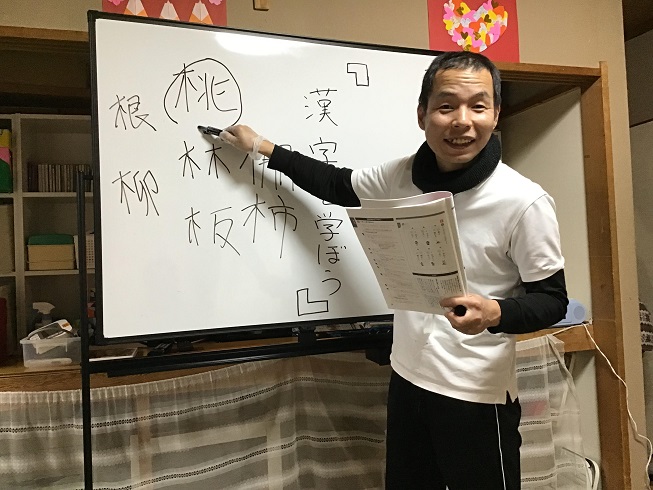 『漢字 学ぼう』
桃
林
板 柿
根
柳